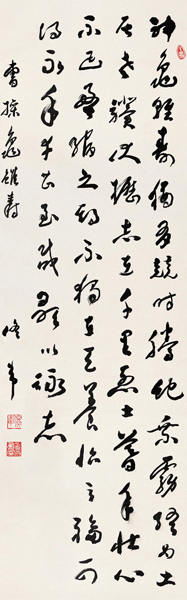 神龜雖壽猶有竟時騰蛇乘霧終為土
灰老驥伏櫪志在千里烈士暮年壯心
不已盈縮之期不獨在天養怡之福可
得永年幸甚至哉歌以詠志
曹操龜雖壽